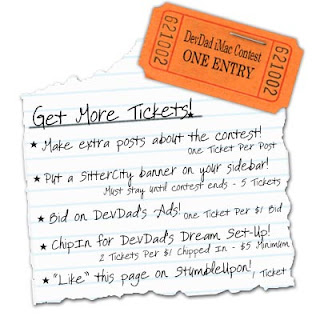 DevDad iMac Contest
ONE ENTRY
621002
621002
Get More Tickets!
★ Make extra posts about the contest!
One Ticket Per Post
★ Put a SitterCity banner on your sidebar!
Must stay until contest ends - 5 Tickets
★ Bid on DevDad's Ads! One Ticket Per $1 Bid
★ ChipIn for DevDad's Dream Set-Up!
2 Tickets Per $1 Chipped In - $5 Minimum
★ "Like" this page on StumbleUpon! 1 Ticket